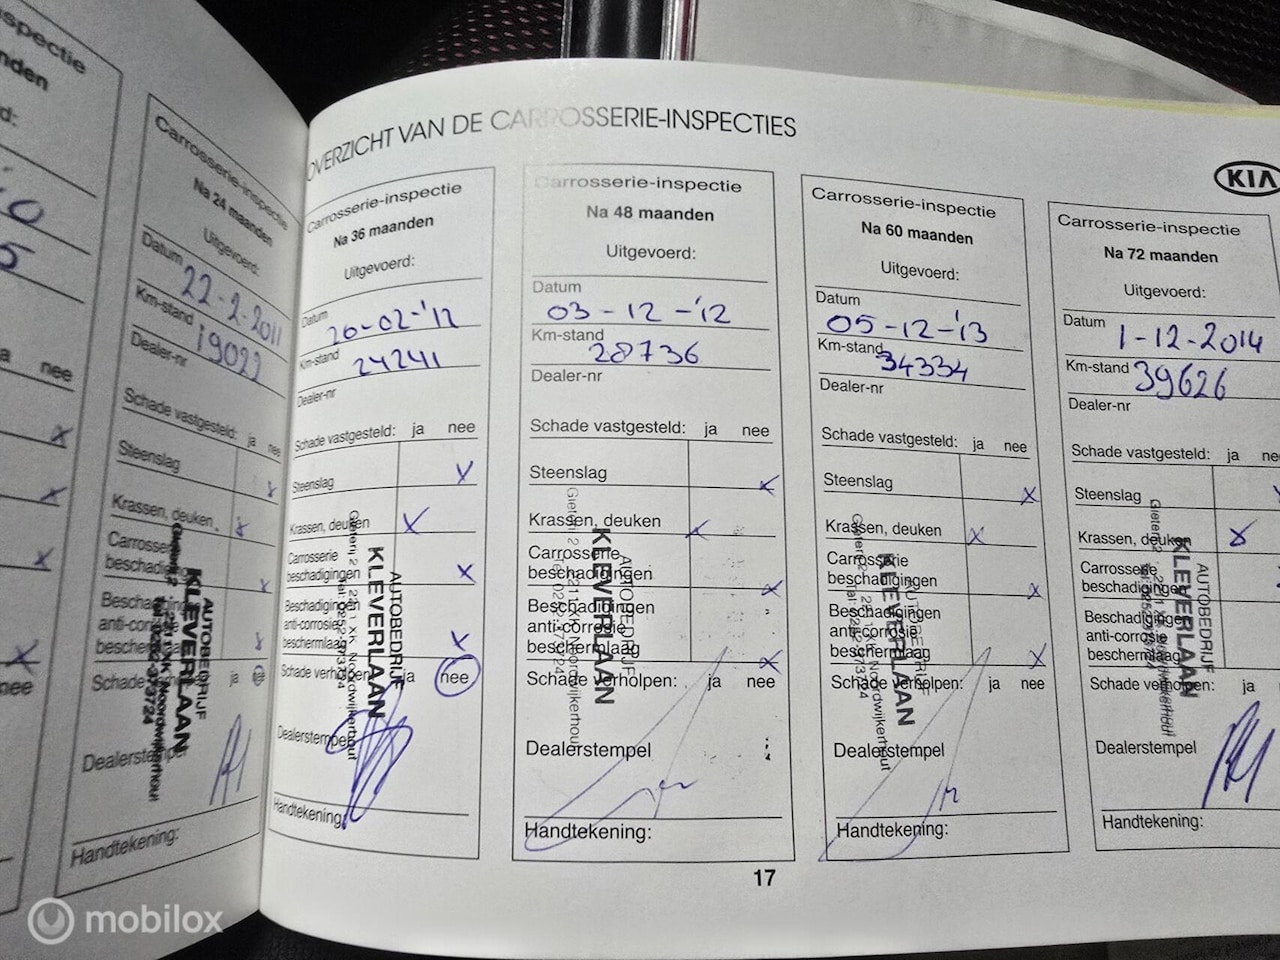 spectie
nden
d:
a nee
nee
Carrosserie-inspectie
Na 24 maanden
Uitgevoerd:
Datum 22-2-2011
Km-stand 19022
Dealer-nr
Schade vastgesteld: ja nee
Steenslag
Krassen, deuken
Carrosserie
beschadigingen
Beschadigingen
anti-corrosie
beschermlaag
Schade verholpen: ja nee
AUTOBEDRIJF
KLEVERLAAN
Dealerstempel
Handtekening:
OVERZICHT VAN DE CARROSSERIE-INSPECTIES
KIA
Carrosserie-inspectie
Na 36 maanden
Uitgevoerd:
Datum 20-02-'12
Km-stand 24241
Dealer-nr
Schade vastgesteld: ja nee
Steenslag X
Krassen, deuken X
Carrosserie
beschadigingen X
Beschadigingen
anti-corrosie
beschermlaag X
Schade verholpen: ja nee
AUTOBEDRIJF
KLEVERLAAN
Dealerstempel
Handtekening:
Carrosserie-inspectie
Na 48 maanden
Uitgevoerd:
Datum
03-12-'12
Km-stand 28736
Dealer-nr
Schade vastgesteld: ja nee
Steenslag X
Krassen, deuken X
Carrosserie
beschadigingen X
Beschadigingen
anti-corrosie
beschermlaag X
Schade verholpen: ja nee
AUTOBEDRIJF
KLEVERLAAN
Dealerstempel
Handtekening:
Carrosserie-inspectie
Na 60 maanden
Uitgevoerd:
Datum
05-12-'13
Km-stand 34334
Dealer-nr
Schade vastgesteld: ja nee
Steenslag X
Krassen, deuken X
Carrosserie
beschadigingen X
Beschadigingen
anti-corrosie
beschermlaag X
Schade verholpen: ja nee
KLEVERLAAN
Dealerstempel
Handtekening:
Carrosserie-inspectie
Na 72 maanden
Uitgevoerd:
Datum 1-12-2014
Km-stand 39626
Dealer-nr
Schade vastgesteld: ja ne
Steenslag
Krassen, deuken X
Carrosserie
beschadigingen
Beschadigingen
anti-corrosie
beschermlaag
Schade verholpen: ja
AUTOBEDRIJF
KLEVERLAAN
Dealerstempel
Handtekening:
17
mobilox